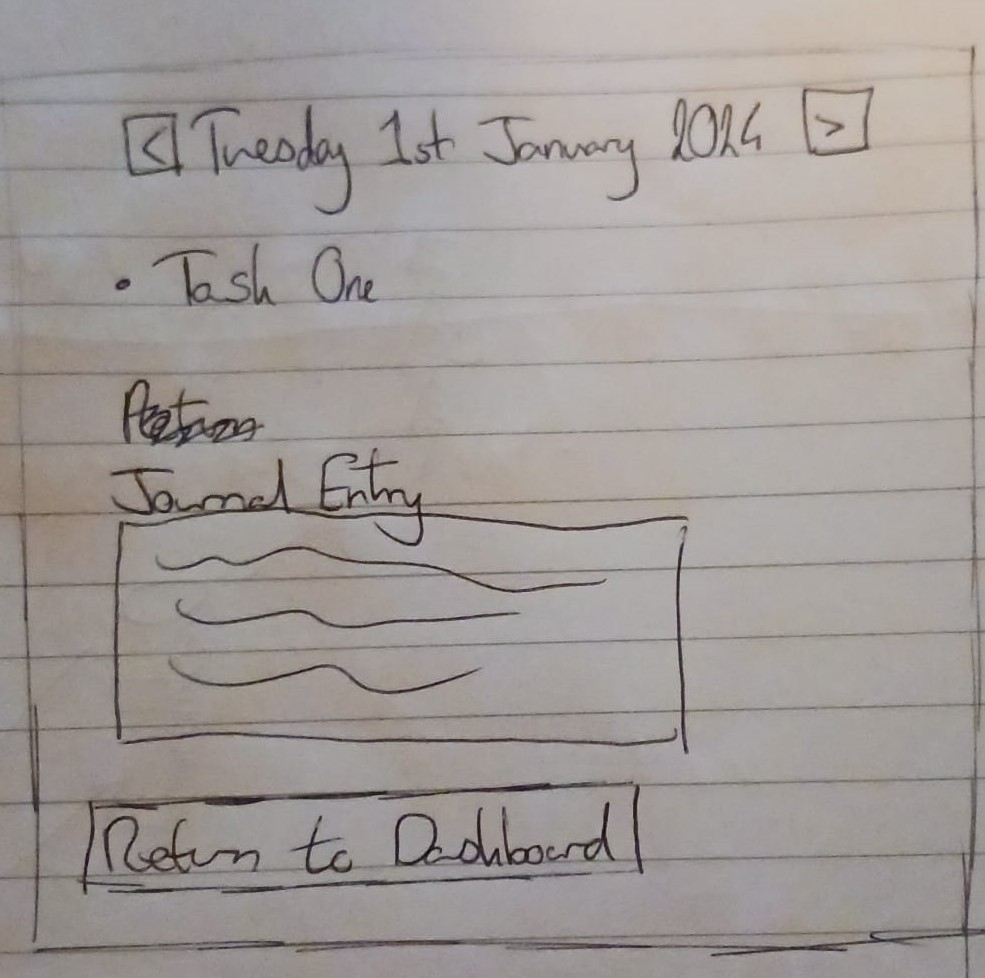 < Tuesday 1st January 2024 >
• Task One
Journal Entry
Return to Dashboard